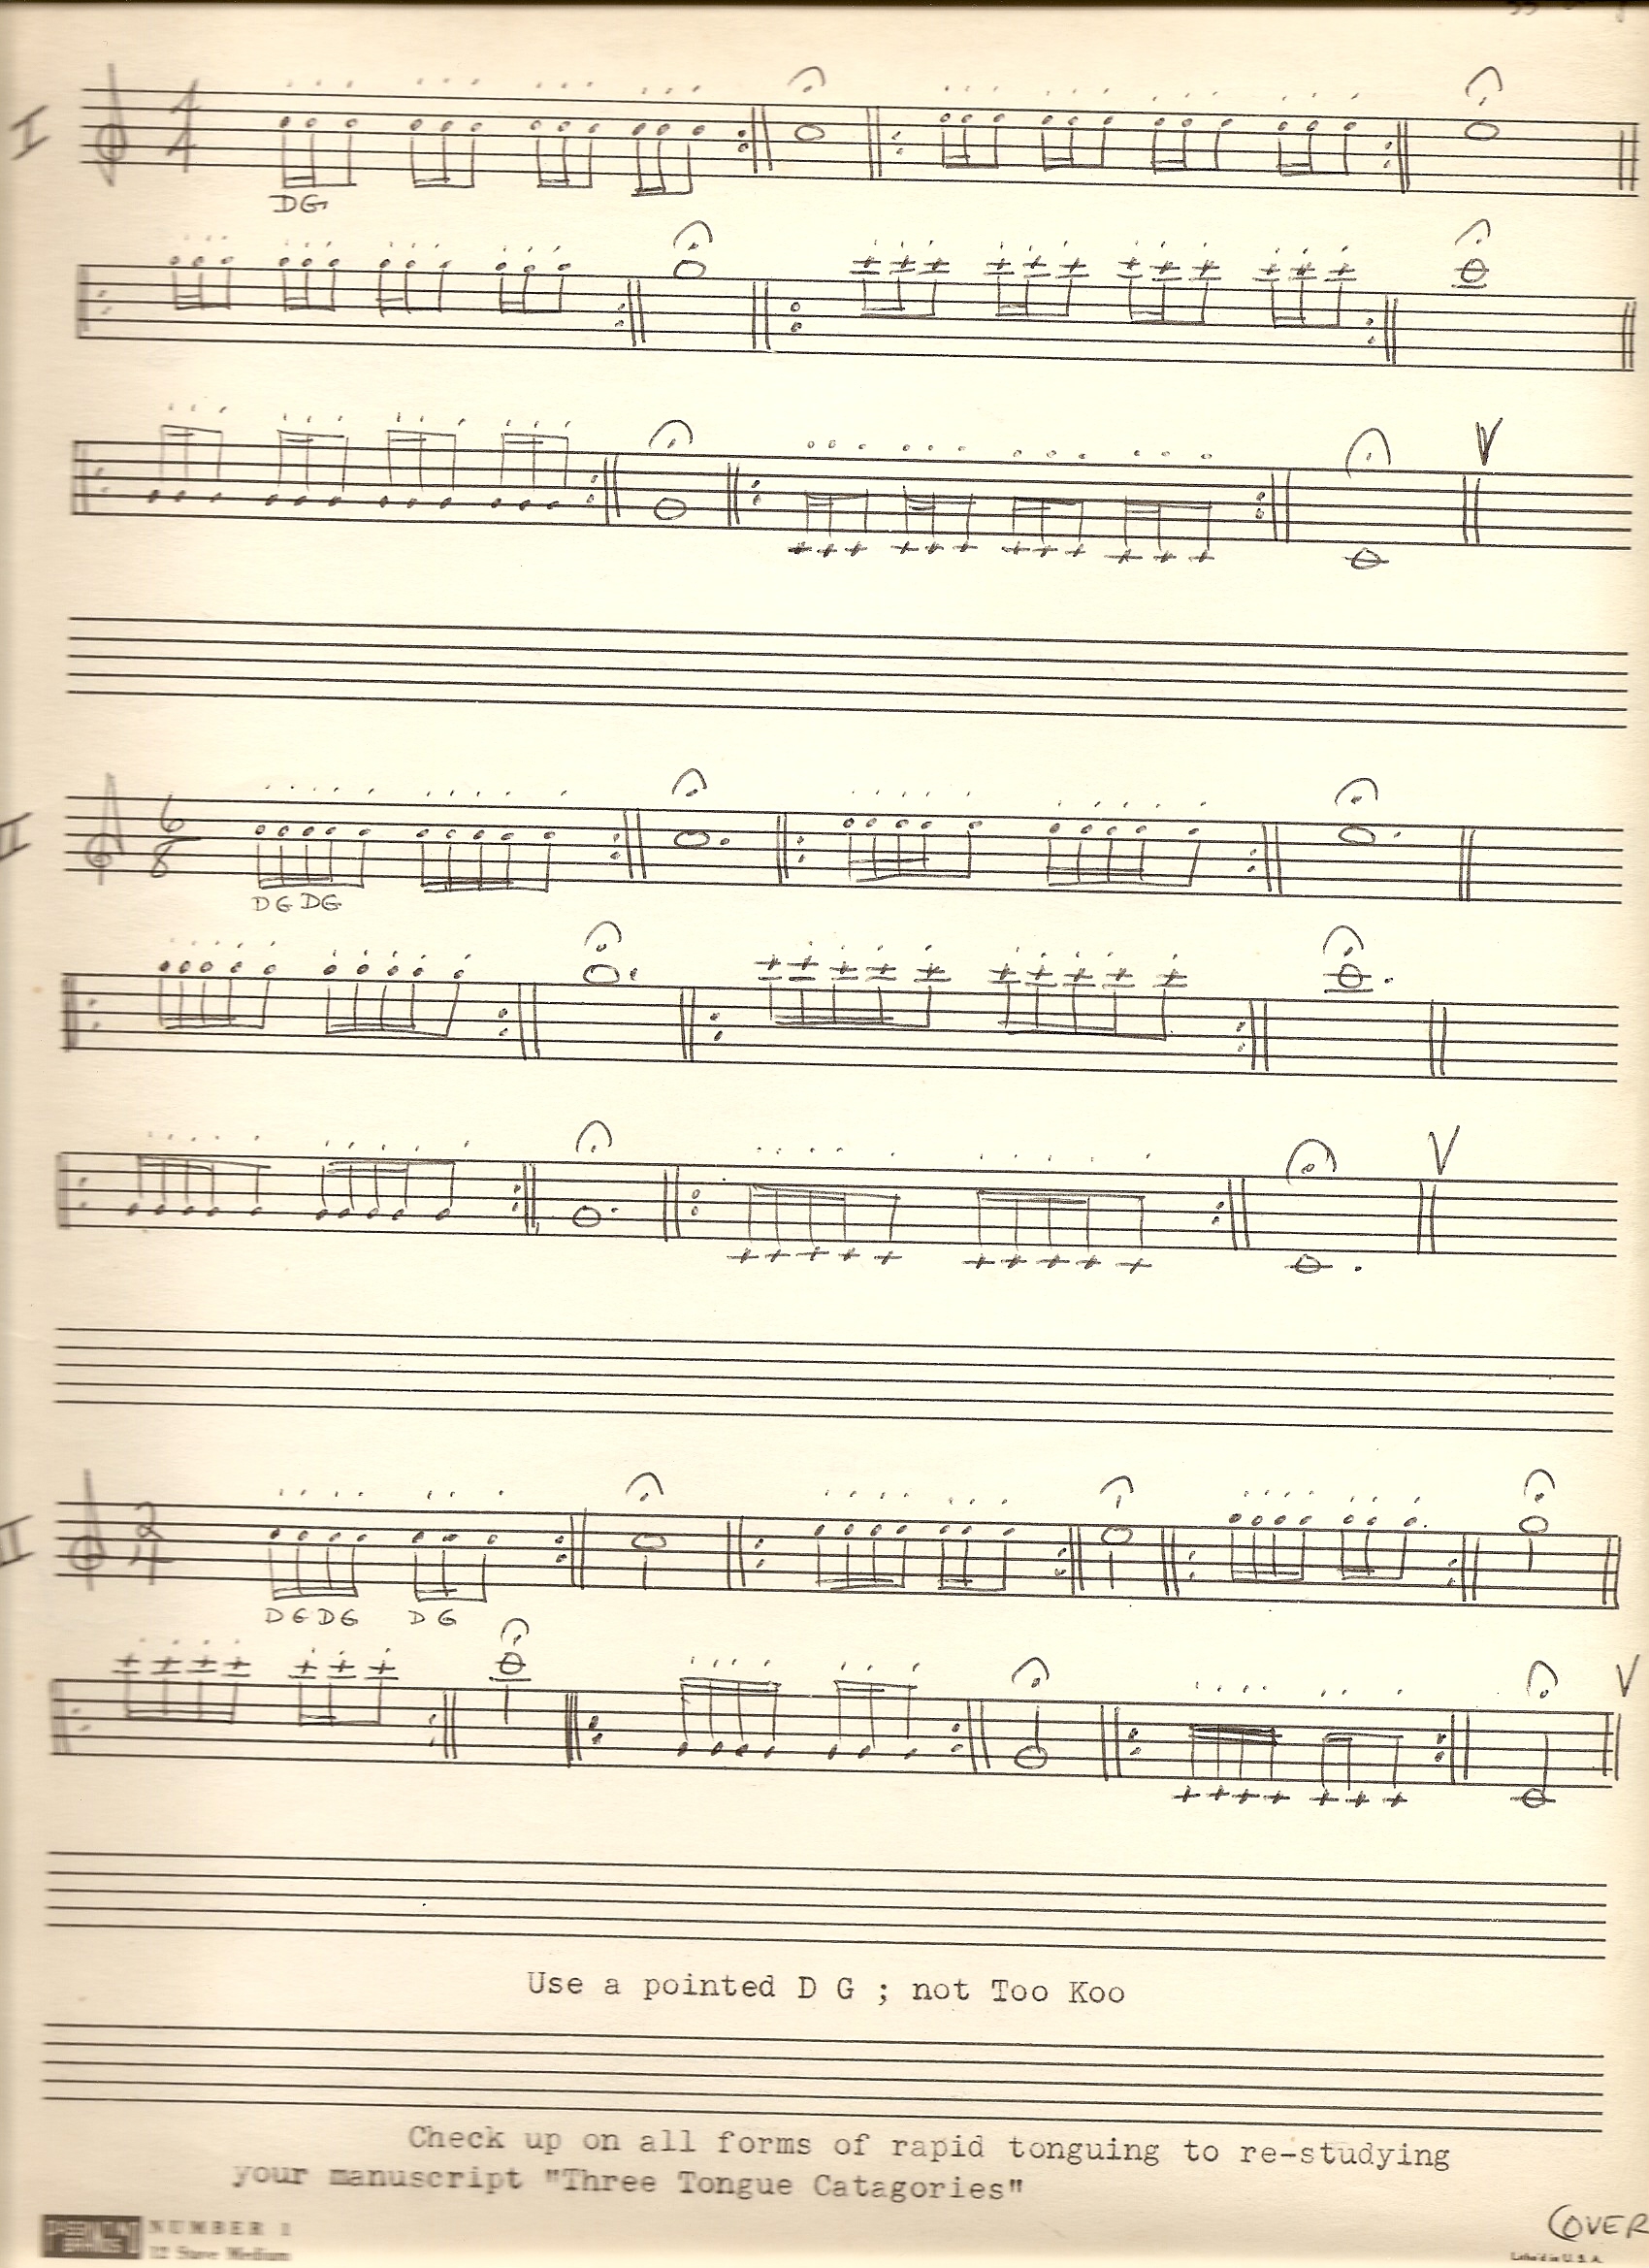 I
4
4
DG
V
II
6
8
DG DG
V
2
4
DGDG DG
V
Use a pointed D G ; not Too Koo
Check up on all forms of rapid tonguing to re-studying
your manuscript "Three Tongue Catagories"
NUMBER 1
12 Stave Medium
COVER
Litho'd in U.S.A.